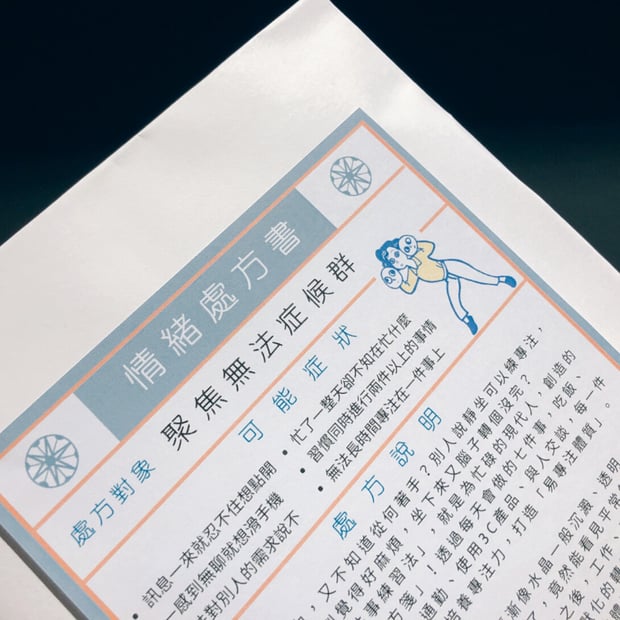 情緒處方書
處方對象 聚焦無法症候群
可能症狀
• 訊息一來就忍不住想點開
一感到無聊就想滑手機
對別人的需求說不
• 忙了一整天卻不知在忙什麼
• 習慣同時進行兩件以上的事情
• 無法長時間專注在一件事上
處方說明
，又不知道從何著手？別人說靜坐可以練專注，
覺得好麻煩，坐下來又腦子轉個沒完？
事練習法」，就是為忙碌的現代人，創造的
方箋」！透過每天會做的七件事，吃飯、
通勤、使用3C產品、與人交談，每一件
培養專注力，打造「易專注體質」。
漸像水晶一般沉澱、透明
了，竟然能看見平常
之後，工作、
化的轉